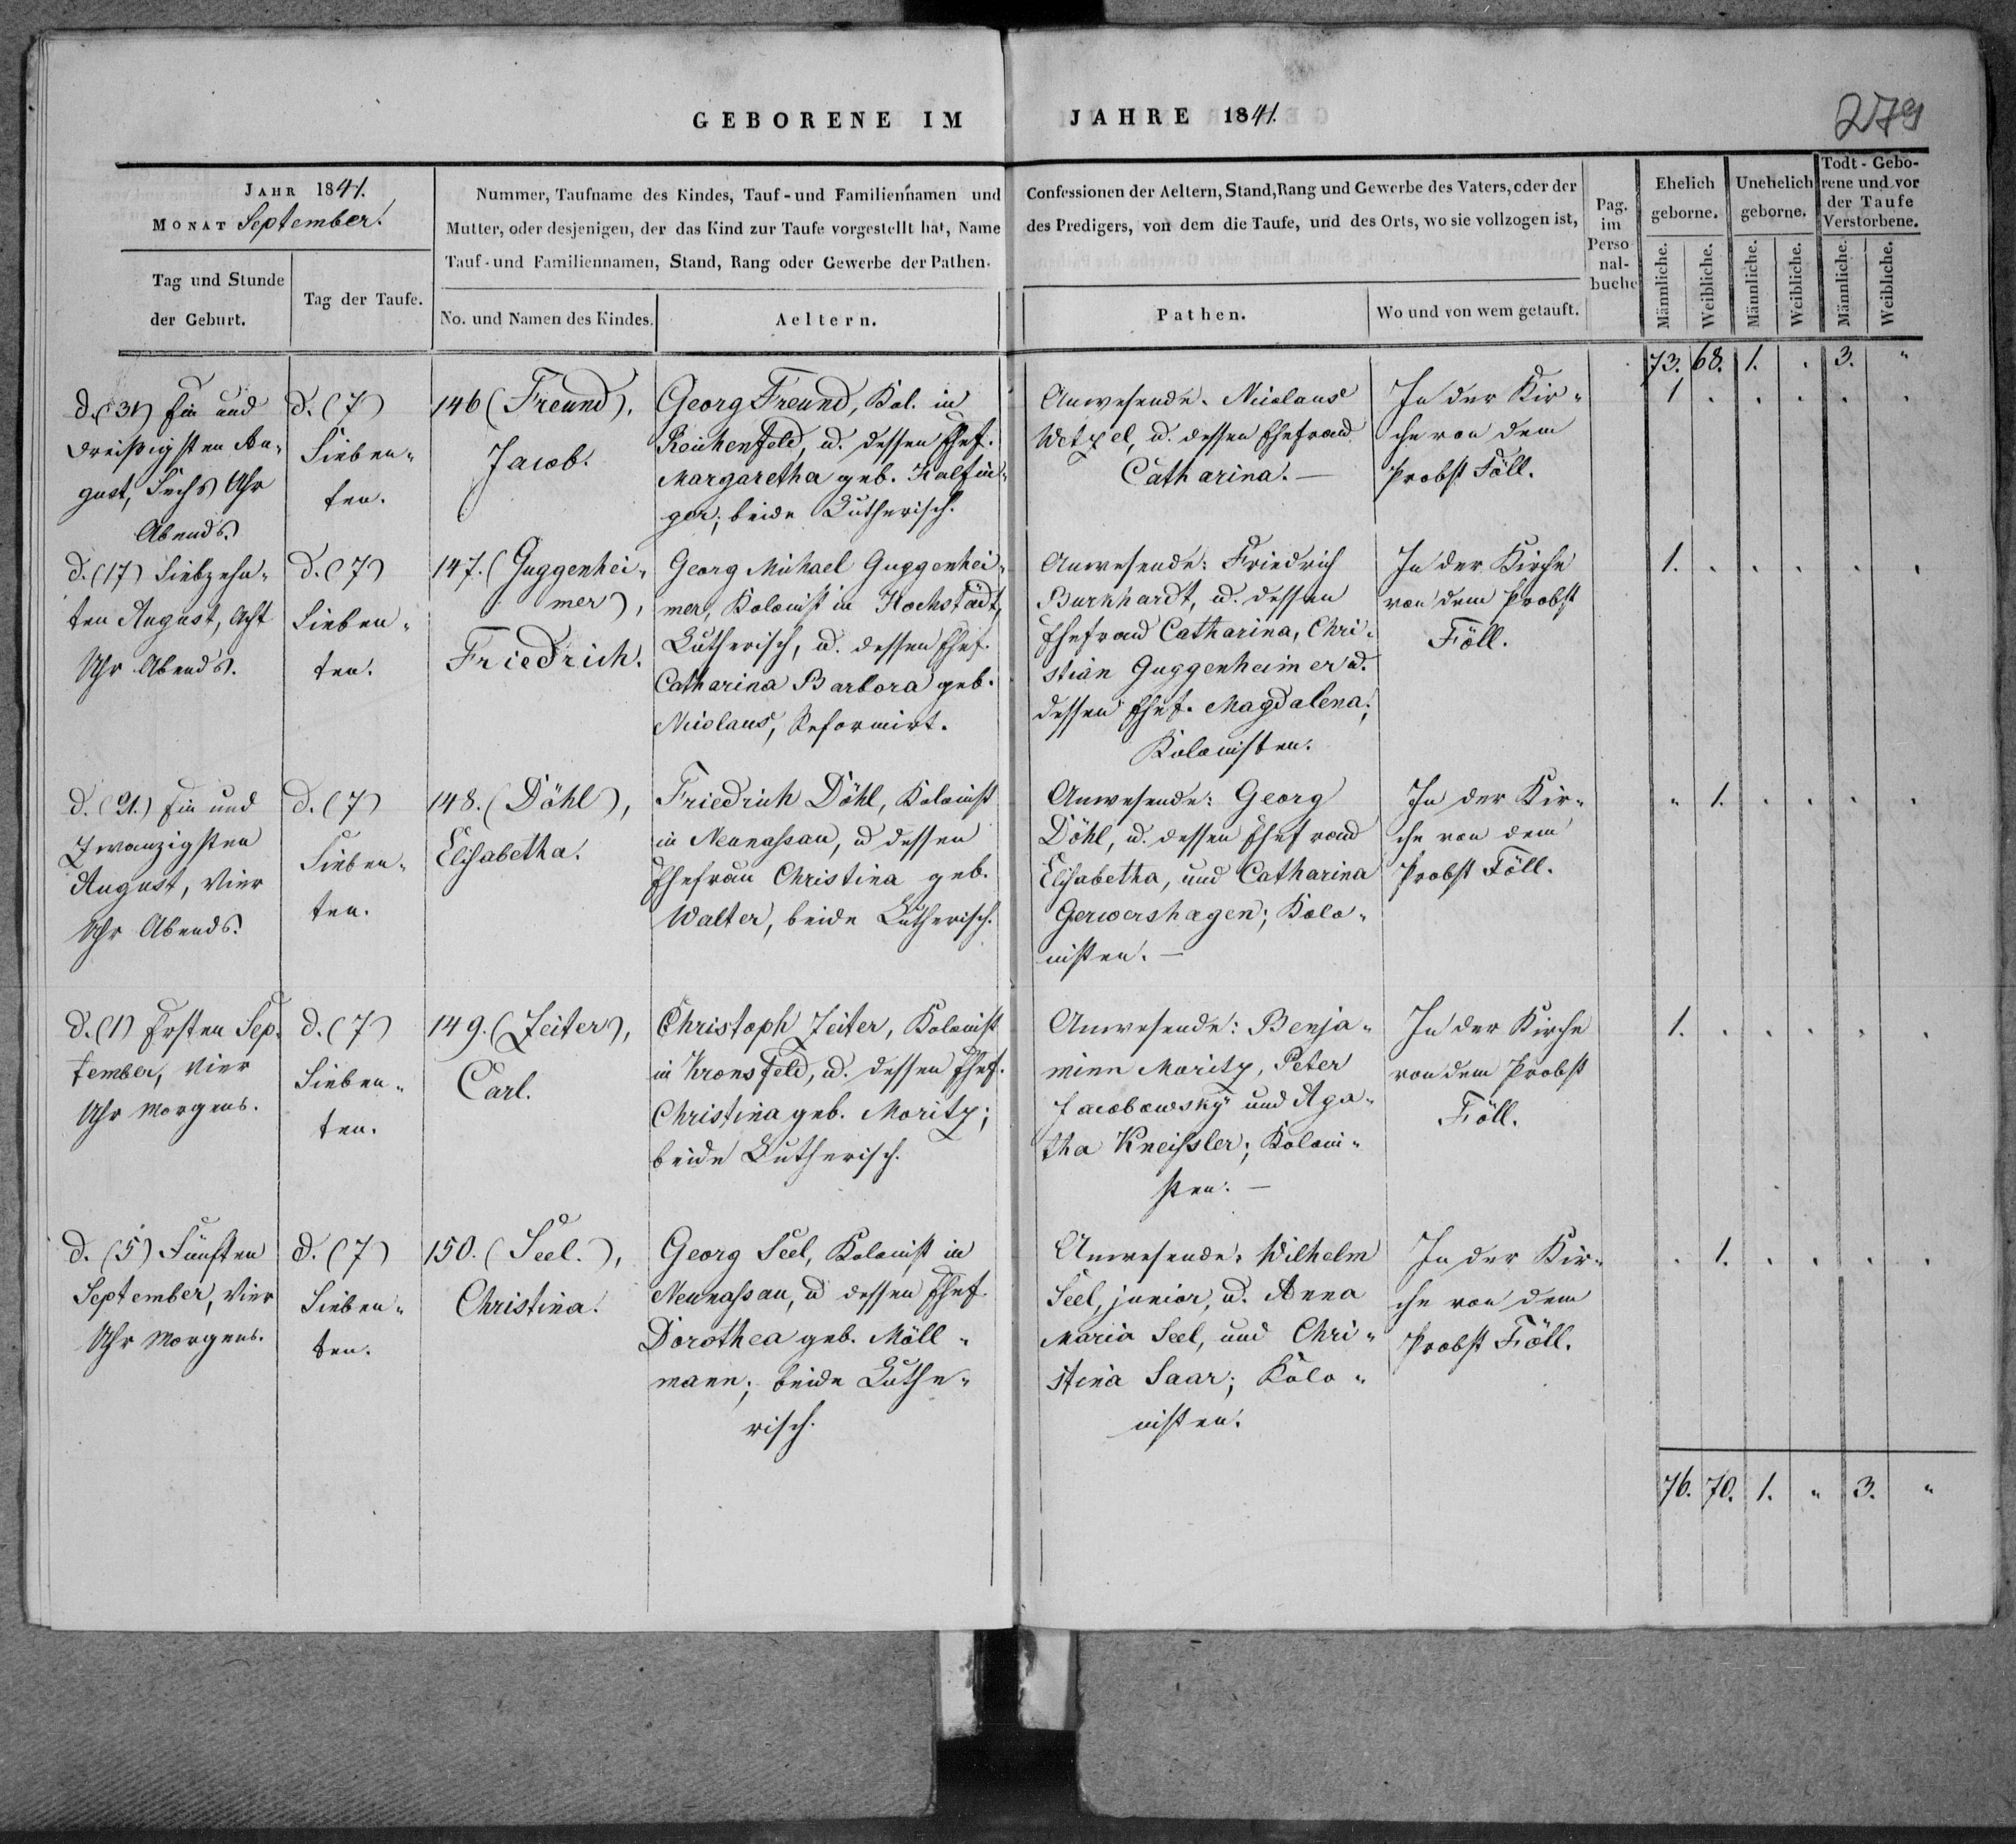 GEBORENE IM JAHRE 1841.
279
JAHR 1841.
MONAT September.
Tag und Stunde
der Geburt.
Tag der Taufe.
Nummer, Taufname des Kindes, Tauf- und Familiennamen und
Mutter, oder desjenigen, der das Kind zur Taufe vorgestellt hat, Name
Tauf- und Familiennamen, Stand, Rang oder Gewerbe der Pathen.
No. und Namen des Kindes.
Aeltern.
Confessionen der Aeltern, Stand, Rang und Gewerbe des Vaters, oder der
des Predigers, von dem die Taufe, und des Orts, wo sie vollzogen ist,
Pathen.
Wo und von wem getauft.
Pag.
im
Perso
nal-
buche
Ehelich
geborne.
Unehelich
geborne.
Todt-Gebo-
rene und vor
der Taufe
Verstorbene.
Männliche.
Weibliche.
Männliche.
Weibliche.
Männliche.
Weibliche.
73. 68. 1. . 3. "
d. (31) Ein und
dreißigsten Au-
gust, Sechs Uhr
Abends.
d. (7)
Sieben-
ten.
146 (Freund),
Jacob.
Georg Freund, Kol. in
Reichenfeld, u. dessen Ehef.
Margaretha geb. Kalfin-
ger; beide Lutherisch.
Anwesende. Nicolaus
Wetzel, u. dessen Ehefrau
Catharina. —
In der Kir-
che von dem
Probst Föll.
1 . . . . .
d. (17) Siebzehn-
ten August, Acht
Uhr Abends.
d. (7)
Sieben-
ten.
147. (Guggenhei-
mer),
Friedrich.
Georg Michael Guggenhei-
mer, Kolonist in Hochstädt,
Lutherisch, u. dessen Ehef.
Catharina Barbara geb.
Nicolaus, Reformirt.
Anwesende: Friedrich
Burkhardt, u. dessen
Ehefrau Catharina, Chri-
stian Guggenheimer u.
dessen Ehef. Magdalena;
Kolonisten.
In der Kirche
von dem Probst
Föll.
1. . . . . .
d. (21.) Ein und
zwanzigsten
August, Vier
Uhr Abends.
d. (7)
Sieben-
ten.
148. (Döhl),
Elisabetha.
Friedrich Döhl, Kolonist
in Neunassau, u dessen
Ehefrau Christina geb.
Walter, beide Lutherisch.
Anwesende: Georg
Döhl, u. dessen Ehefrau
Elisabetha, und Catharina
Gerwershagen; Kolo-
nisten. —
In der Kir-
che von dem
Probst Föll.
" 1. . . . .
d. (1) Ersten Sep-
tember, Vier
Uhr Morgens.
d. (7)
Sieben-
ten.
149. (Zeiter),
Carl.
Christoph Zeiter, Kolonist
in Kronsfeld, u. dessen Ehef.
Christina geb. Moritz;
beide Lutherisch.
Anwesende: Benja-
minn Moritz, Peter
Jacobowsky und Aga-
tha Kneissler; Koloni-
sten. —
In der Kirche
von dem Probst
Föll.
1. . . . . .
d. (5) Fünften
September, Vier
Uhr Morgens.
d. (7)
Sieben-
ten.
150. (Seel.),
Christina.
Georg Seel, Kolonist in
Neunassau, u dessen Ehef.
Dorothea geb. Möll-
mann; beide Luthe-
risch.
Anwesende: Wilhelm
Seel, junior, u. Anna
Maria Seel, und Chri-
stina Saar; Kolo-
nisten.
In der Kir-
che von dem
Probst Föll.
. 1. . . . .
76. 70. 1. " 3. "